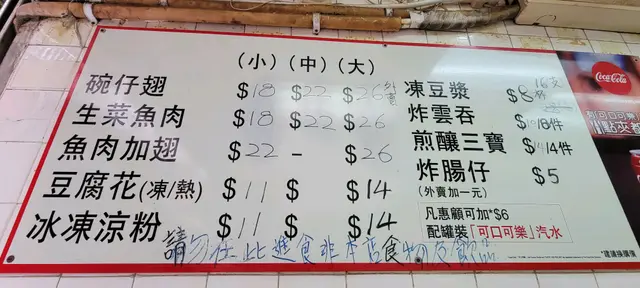 (小)(中)(大)
碗仔翅 $18 $22 $26 外賣
生菜魚肉 $18 $22 $26
魚肉加翅 $22 - $26
豆腐花(凍/熱) $11 $ $14
冰凍涼粉 $11 $ $14
凍豆漿 $8
炸雲吞 $10 8件
煎釀三寶 $14 4件
炸腸仔 $5
(外賣加一元)
凡惠顧可加*$6
配罐裝「可口可樂」汽水
請勿在此進食非本店食物及飲品
*建議換購價
Coca-Cola
可口可樂